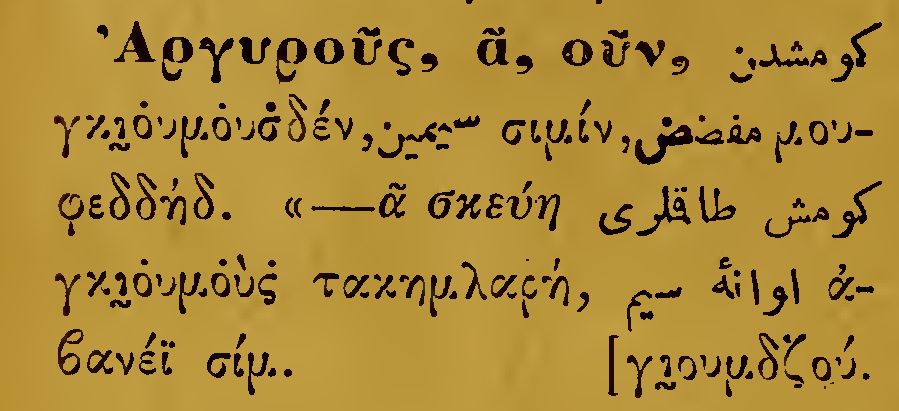 Ἀργυροῦς, ᾶ, οῦν, كومشدن
γκι̯ȯυμȯυσ̇δέν, سيمين σιμίν, مفضض μου-
φεδδήδ. «—ᾶ σκεύη كومش طاقلری
γκι̯ȯυμȯὺς̇ τακημλαρή, اوانهٔ سيم ἀ-
ϐανέϊ σίμ.. [γι̯ουμδζού.